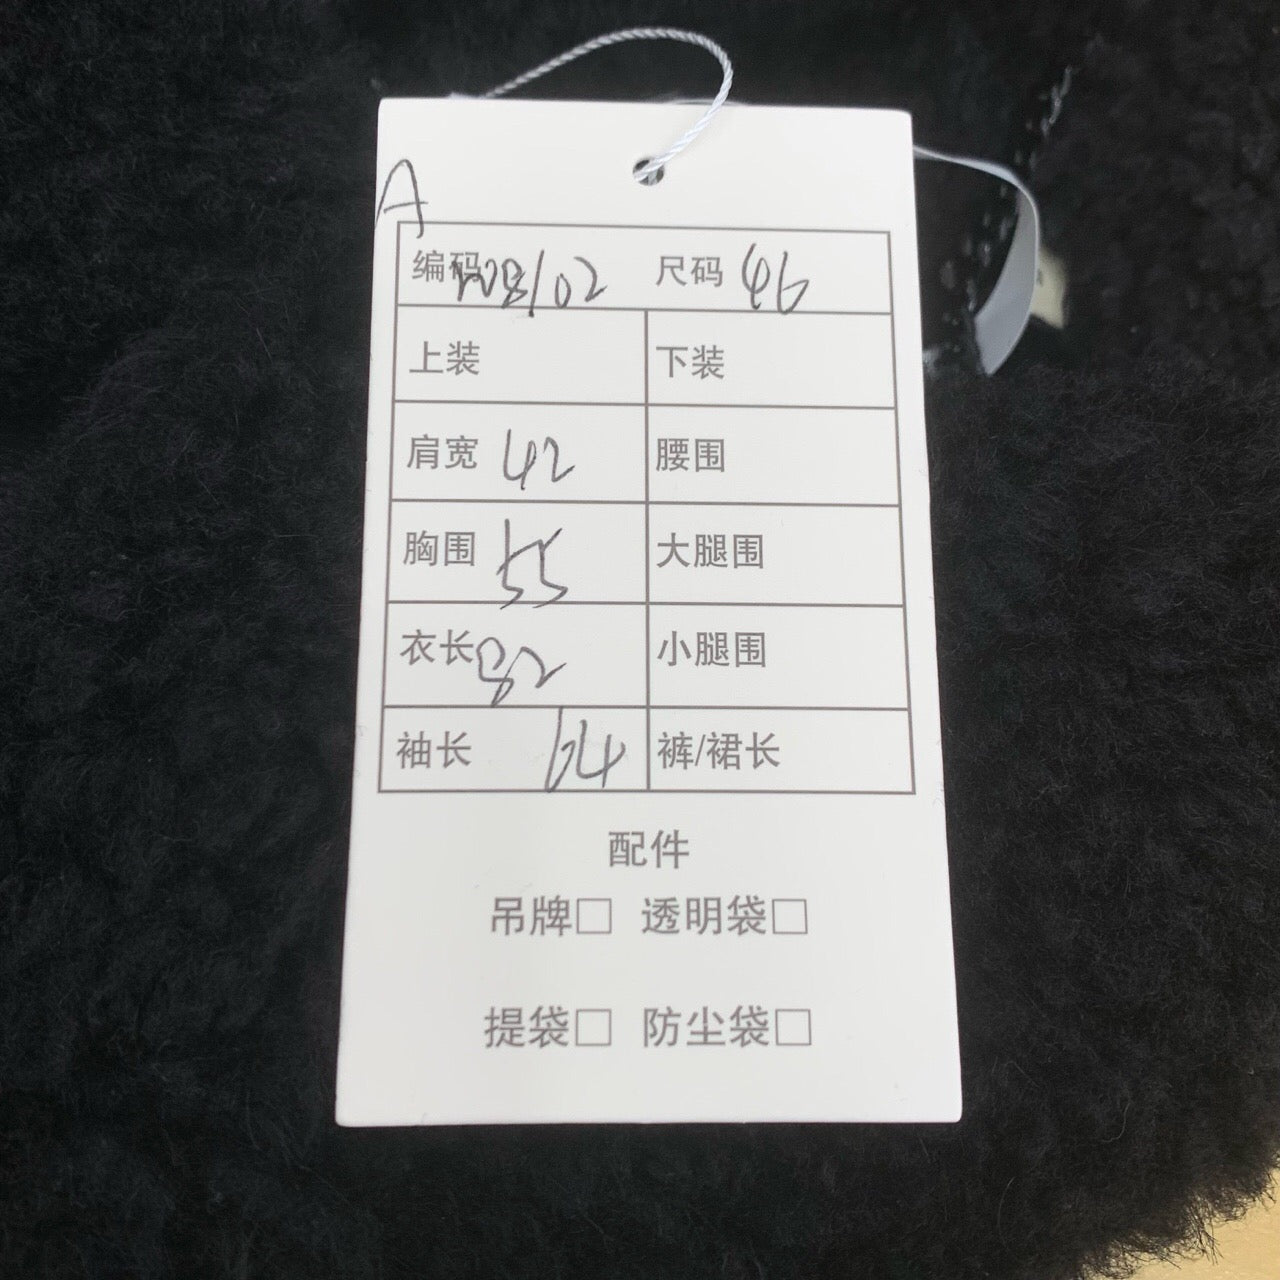 A
编码 尺码 46
上装 下装
肩宽 42 腰围
胸围 55 大腿围
衣长 82 小腿围
袖长 64 裤/裙长
配件
吊牌□ 透明袋□
提袋□ 防尘袋□